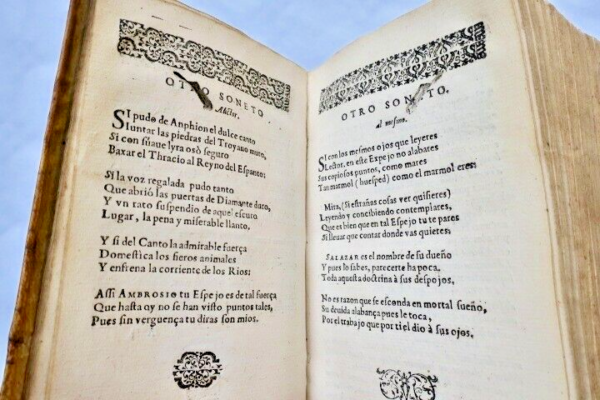 OTRO SONETO
Si pudo de Anphion el dulce canto
Iuntar las piedras del Troyano muro,
Si con suaue lyra osò seguro
Baxar el Thracio al Reyno del Espanto:
Si la voz regalada pudo tanto
Que abrió las puertas de Diamante duro,
Y vn rato suspendio de aquel escuro
Lugar, la pena y miserable llanto,
Y si del Canto la admirable fuerça
Domestica los fieros animales
Y enfrena la corriente de los Rios:
Assi AMBROSIO tu Espejo es de tal fuerça
Que hasta oy no se han visto puntos tales,
Pues sin verguença tu diras son mios.
OTRO SONETO,
al mesmo.
Si con los mesmos ojos que leyeres
Lector, en este Espejo no alabates
Sus copiosos puntos, como mares
Tan marmol (huesped) como el marmol eres
Mira, (Si estrañas cosas ver quisieres)
Leyendo y concibiendo contemplares,
Que es bien que en tal Espejo tu te pares
Si lleuar que contar donde vas quieres;
SALAZAR es el nombre de su dueño
Y pues lo sabes, parecerte ha poca,
Toda aquesta doctrina à sus despojos,
No es razon que se esconda en mortal sueño,
Su deuida alabança pues le toca,
Por el trabajo que por ti el dio à sus ojos,